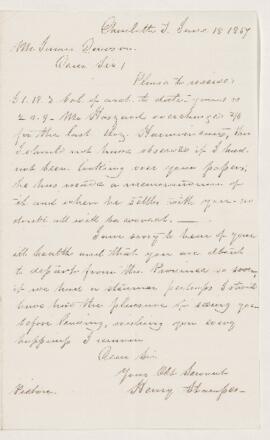 Charlotte T. June 18 1857
Mr James Dawson
Dear Sir /
Please to receive
£1.18.2 Bal of acct. to date yours is
for the last Dog. Harmoniums, this
I should not have observed if I had
not been looking over your papers,
he has made a memorandum of
it and when he settles with you no
doubt all will be correct. —
I am sorry to hear of your
ill health and that you are about
to depart from the Province so soon,
if we had a steamer perhaps I should
have had the pleasure of seeing you
before leaving, wishing you every
happiness I remain
Dear Sir
Your Obt Servant
Henry
Pictou.